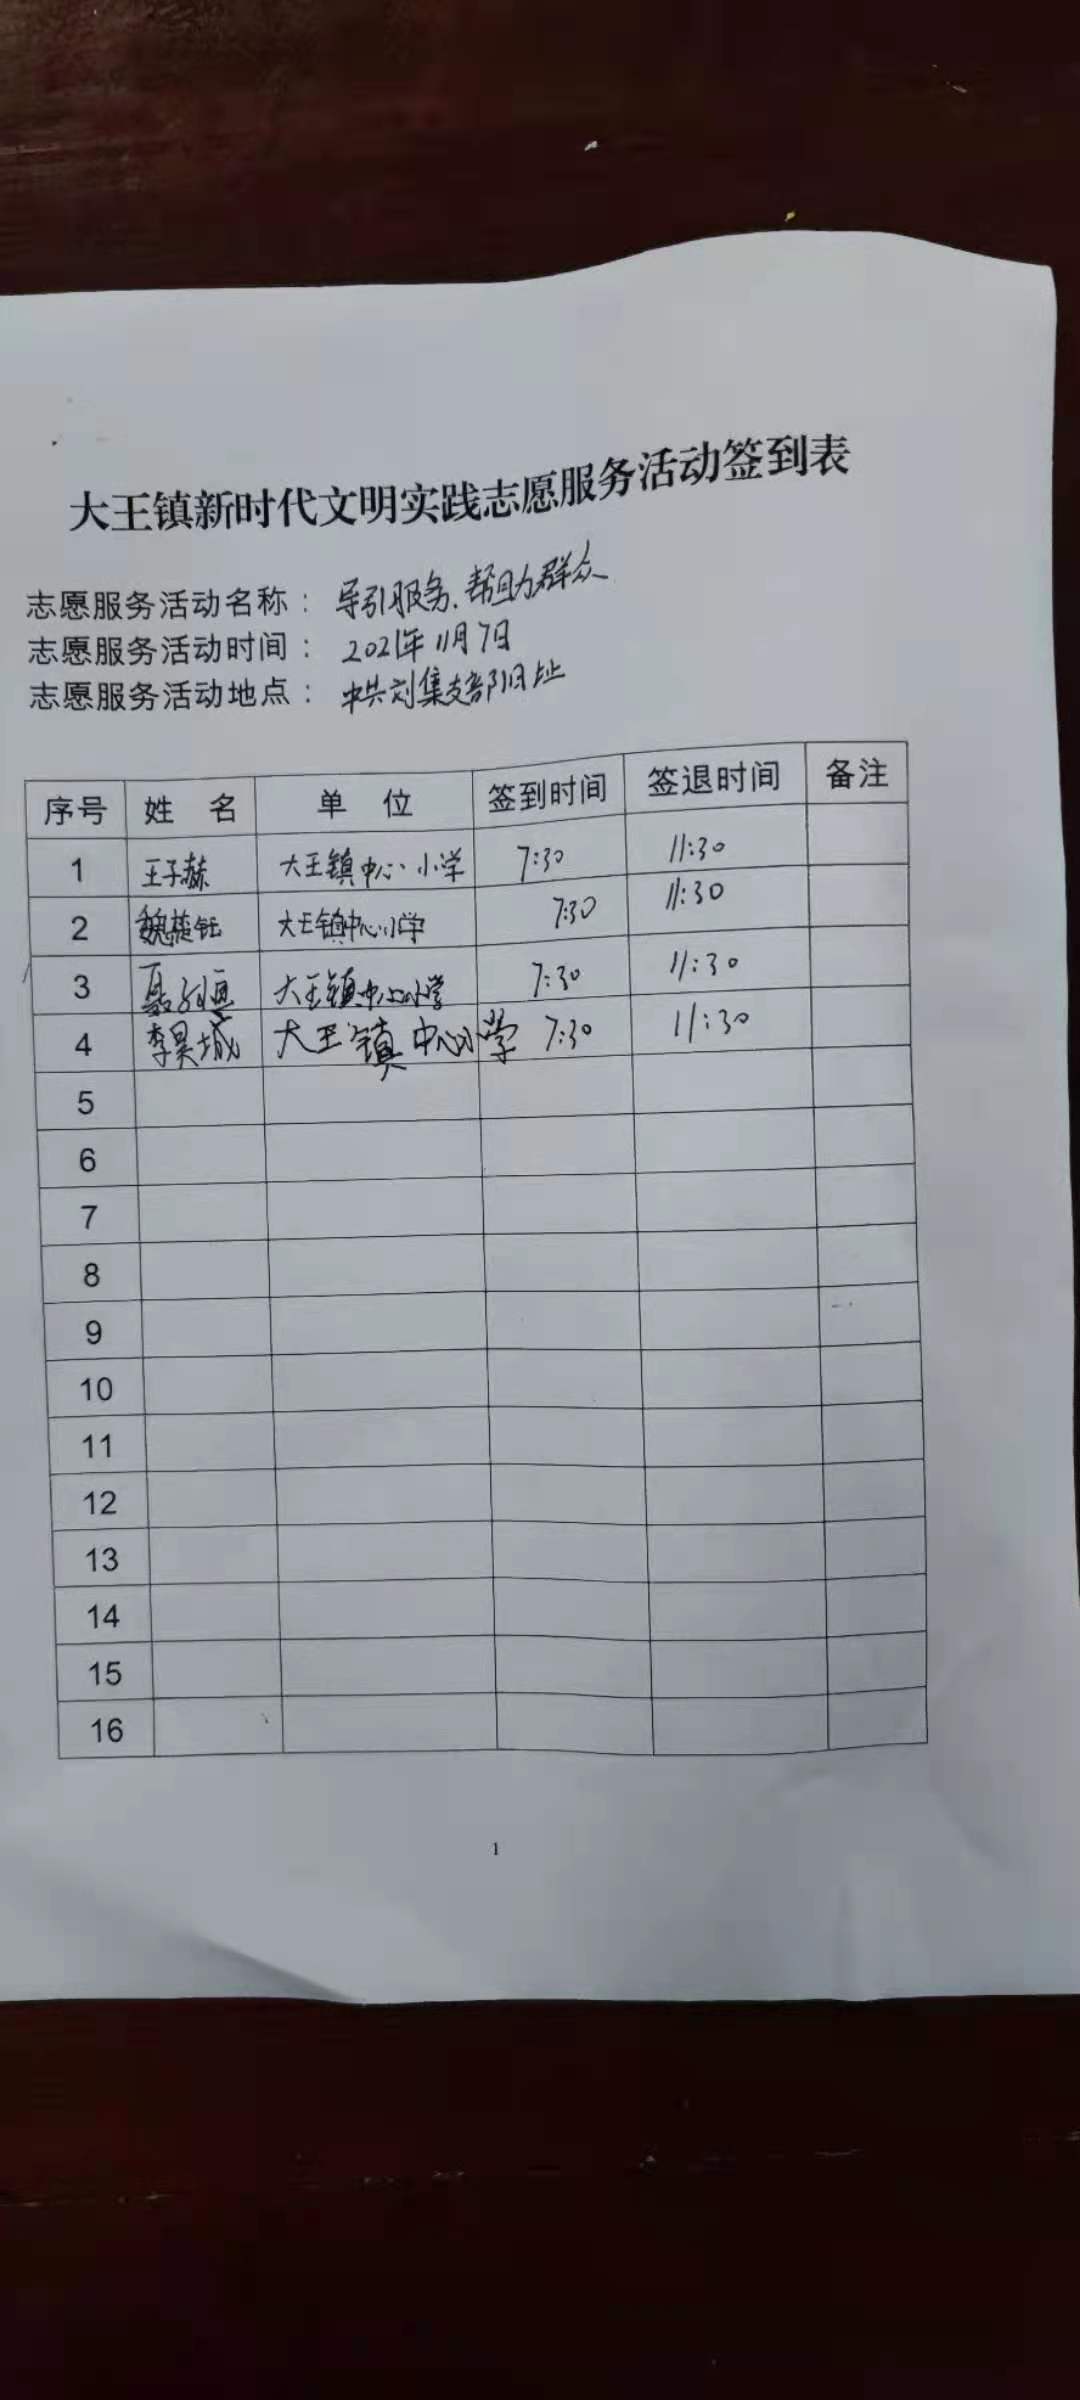 大王镇新时代文明实践志愿服务活动签到表
志愿服务活动名称： 导引服务、帮助群众
志愿服务活动时间： 2021年11月7日
志愿服务活动地点： 中共刘集支部旧址
序号 姓 名 单 位 签到时间 签退时间 备注
1 王子赫 大王镇中心小学 7:30 11:30
2 魏楚钰 大王镇中心小学 7:30 11:30
3 大王镇中心小学 7:30 11:30
4 李昊城 大王镇中心小学 7:30 11:30
5
6
7
8
9
10
11
12
13
14
15
16
1